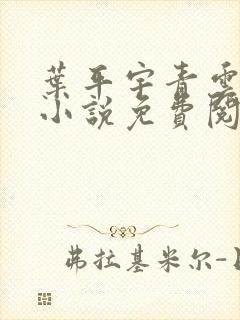 葉平宇青雲
小說免費閱
弗拉基米尔-